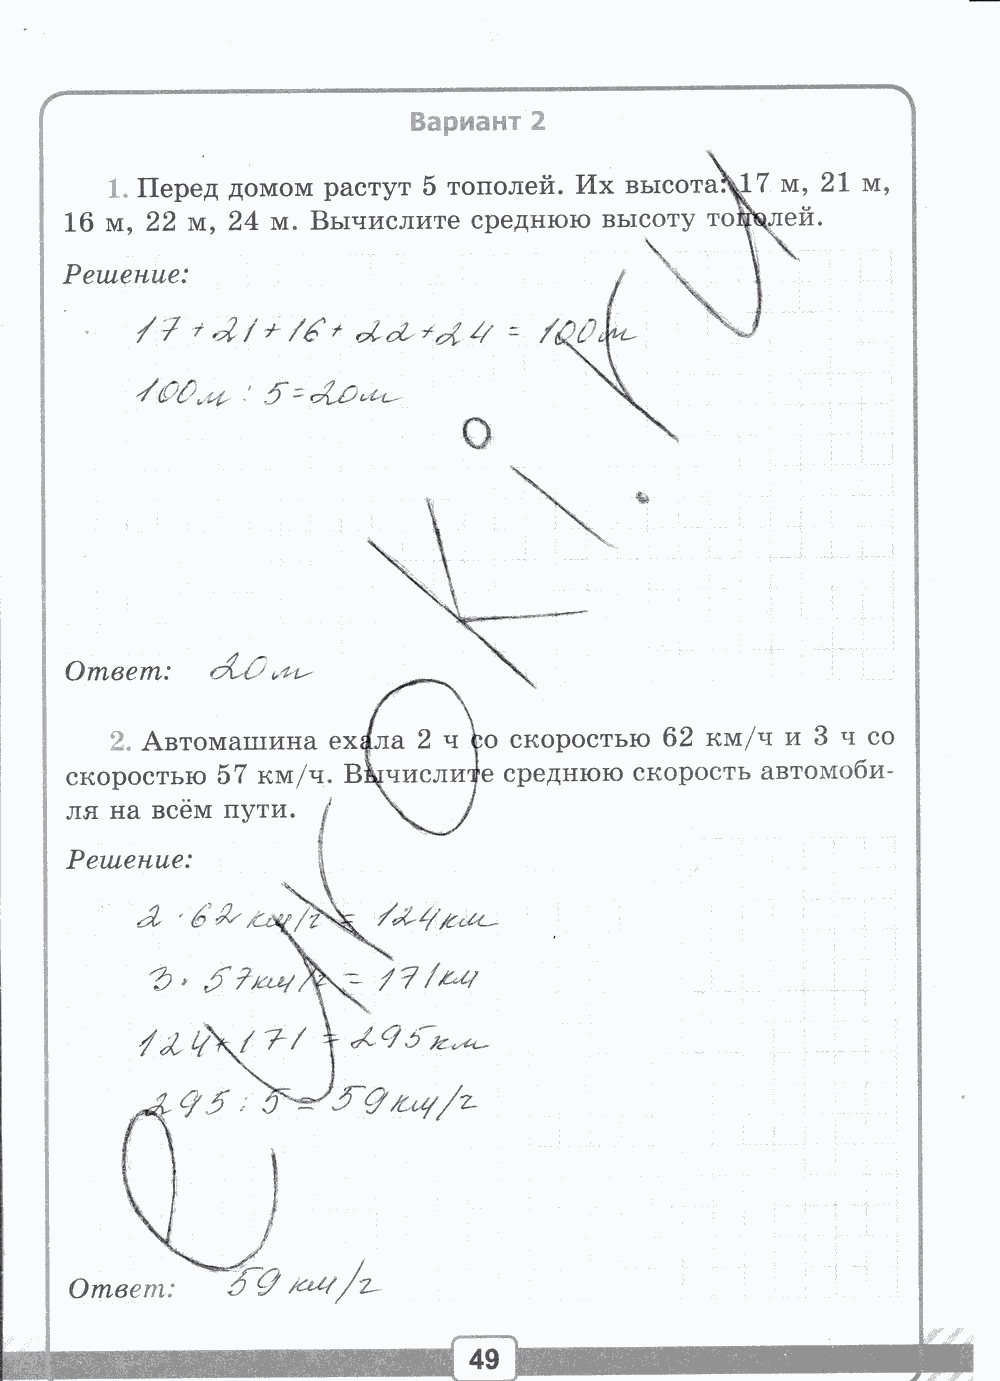 Вариант 2
1. Перед домом растут 5 тополей. Их высота: 17 м, 21 м,
16 м, 22 м, 24 м. Вычислите среднюю высоту тополей.
Решение:
17+21+16+22+24 = 100м
100м : 5=20м
Ответ: 20м
2. Автомашина ехала 2 ч со скоростью 62 км/ч и 3 ч со
скоростью 57 км/ч. Вычислите среднюю скорость автомоби-
ля на всём пути.
Решение:
2 · 62км/ч = 124км
3 · 57км/ч = 171км
124+171 = 295км
295 : 5 = 59км/ч
Ответ: 59км/ч
euroki.ru
49